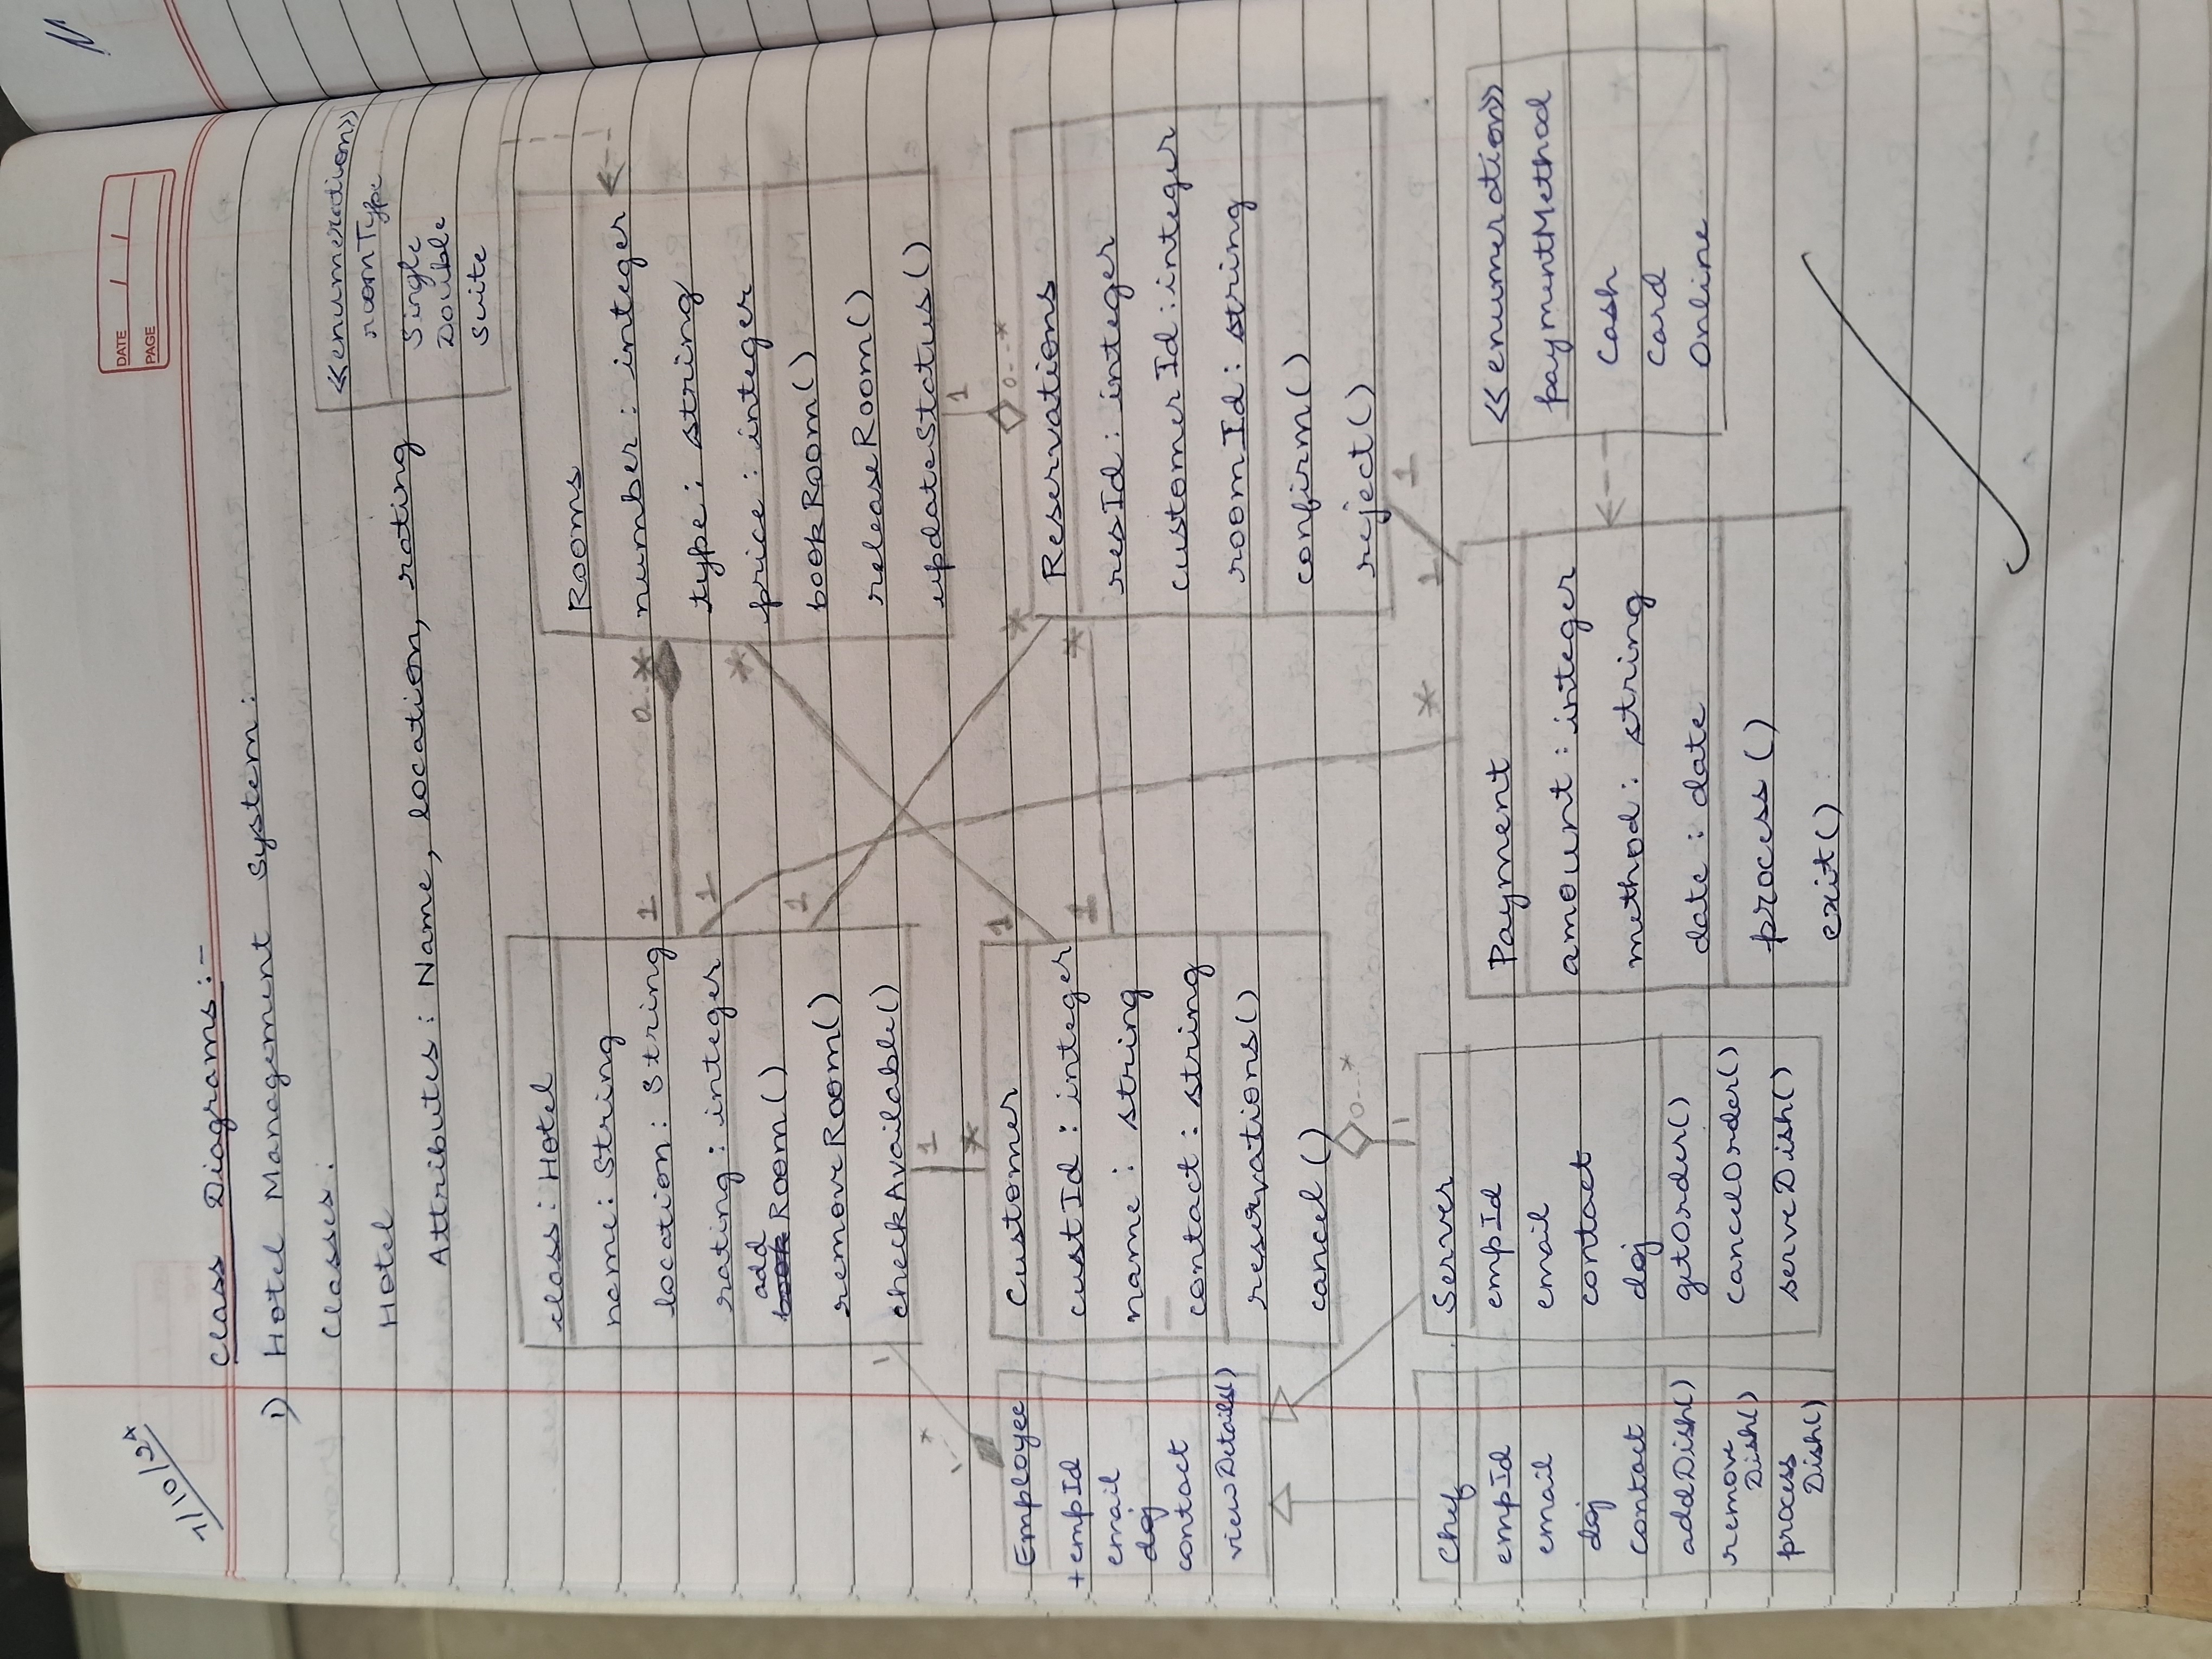 7/10/24
DATE / /
PAGE
Class Diagrams:-
1) Hotel Management System:
Classes:
Hotel
Attributes: Name, location, rating
<<enumeration>>
roomType
Single
Double
Suite
class: Hotel
name: String
location: String
rating: integer
add
book Room()
removeRoom()
checkAvailable()
Rooms
number: integer
type: string
price: integer
bookRoom()
releaseRoom()
updateStatus()
1 0..*
1
1
*
1
1..*
1
*
1
0...*
Employee
+empId
email
doj
contact
viewDetails()
Customer
custId: integer
name: string
contact: string
reservations()
cancel()
1
*
1 *
Reservations
resId: integer
customerId: integer
roomId: string
confirm()
reject()
0...*
1
*
1 1
Chef
empId
email
doj
contact
addDish()
remove
Dish()
process
Dish()
Server
empId
email
contact
doj
getOrder()
cancelOrder()
serveDish()
Payment
amount: integer
method: string
date: date
process()
exit()
<<enumeration>>
paymentMethod
Cash
Card
Online